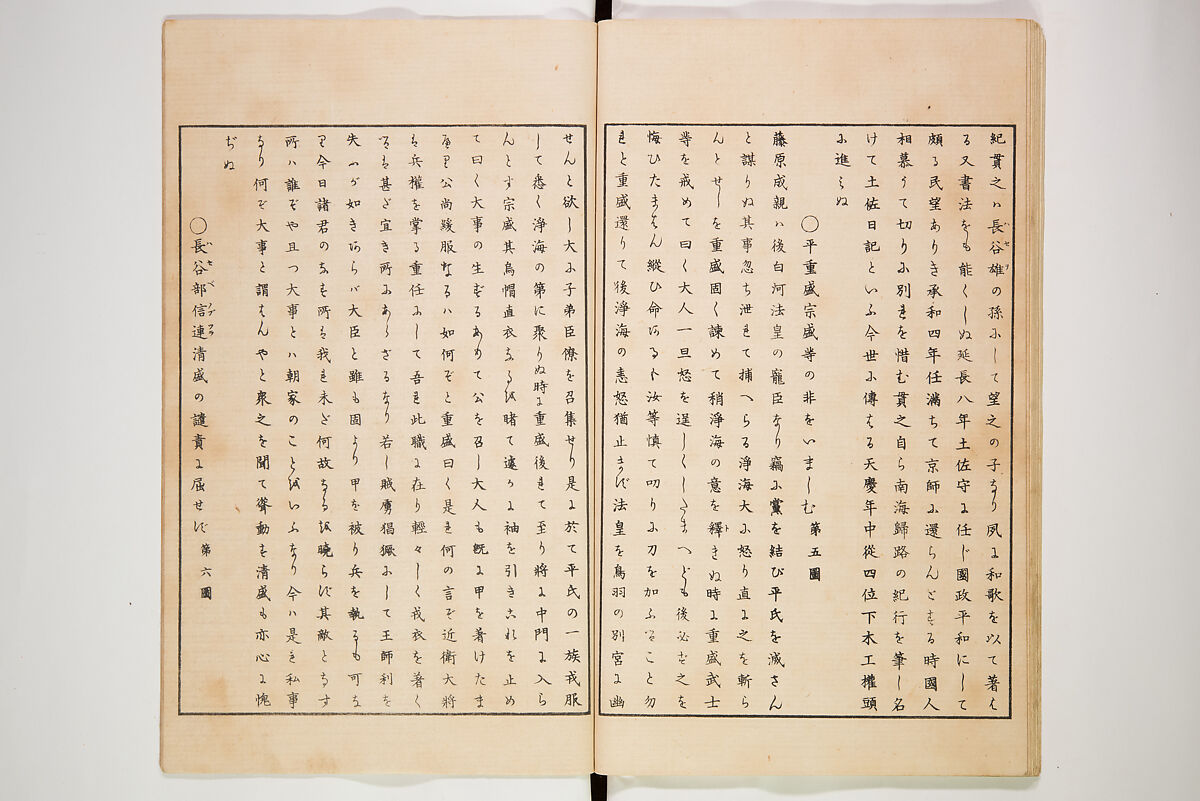 紀貫之ハ長谷雄の孫にして望之の子なり夙に和歌を以て著は
る又書法をも能くしぬ延長八年土佐守に任じ國政平和にして
頗る民望ありき承和四年任滿ちて京師に還らんとする時國人
相慕うて切りに別れを惜む貫之自ら南海歸路の紀行を筆し名
けて土佐日記といふ今世に傳はる天慶年中從四位下木工權頭
に進みぬ
〇平重盛宗盛等の非をいましむ 第五圖
藤原成親ハ後白河法皇の寵臣なり竊に黨を結び平氏を滅さん
と謀りぬ其事忽ち泄れて捕へらる淨海大に怒り直に之を斬ら
んとせしを重盛固く諫めて稍淨海の意を釋きぬ時に重盛武士
等を戒めて曰く大人一旦怒を逞しくしたまへども後必ず之を
悔ひたまはん縱ひ命ある卜汝等慎て叨りに刀を加ふること勿
れと重盛還りて後淨海の恚怒猶止まず法皇を鳥羽の別宮に幽
せんと欲し大に子弟臣僚を召集せり是に於て平氏の一族戎服
して悉く淨海の第に聚りぬ時に重盛後れて至り將に中門に入ら
んとす宗盛其烏帽直衣なるを睹て遽かに袖を引きこれを止め
て曰く大事の生ずるありて公を召し大人も既に甲を著けたま
へり公尚緩服なるハ如何ぞと重盛曰く是れ何の言ぞ近衛大將
は兵權を掌る重任にして吾れ此職に在り輕々しく戎衣を著く
るは甚だ宜き所にあらざるなり若し賊虜猖獗にして王師利を
失ふが如きあらバ大臣と雖も固より甲を被り兵を執るも可な
り今日諸君のなす所は我れ未だ何故なるを曉らず其敵となす
所ハ誰ぞや且つ大事とハ朝家のことをいふなり今ハ是れ私事
なり何ぞ大事と謂はんやと衆之を聞て聳動す清盛も亦心に愧
ぢぬ
〇長谷部信連清盛の譴責に屈せず 第六圖